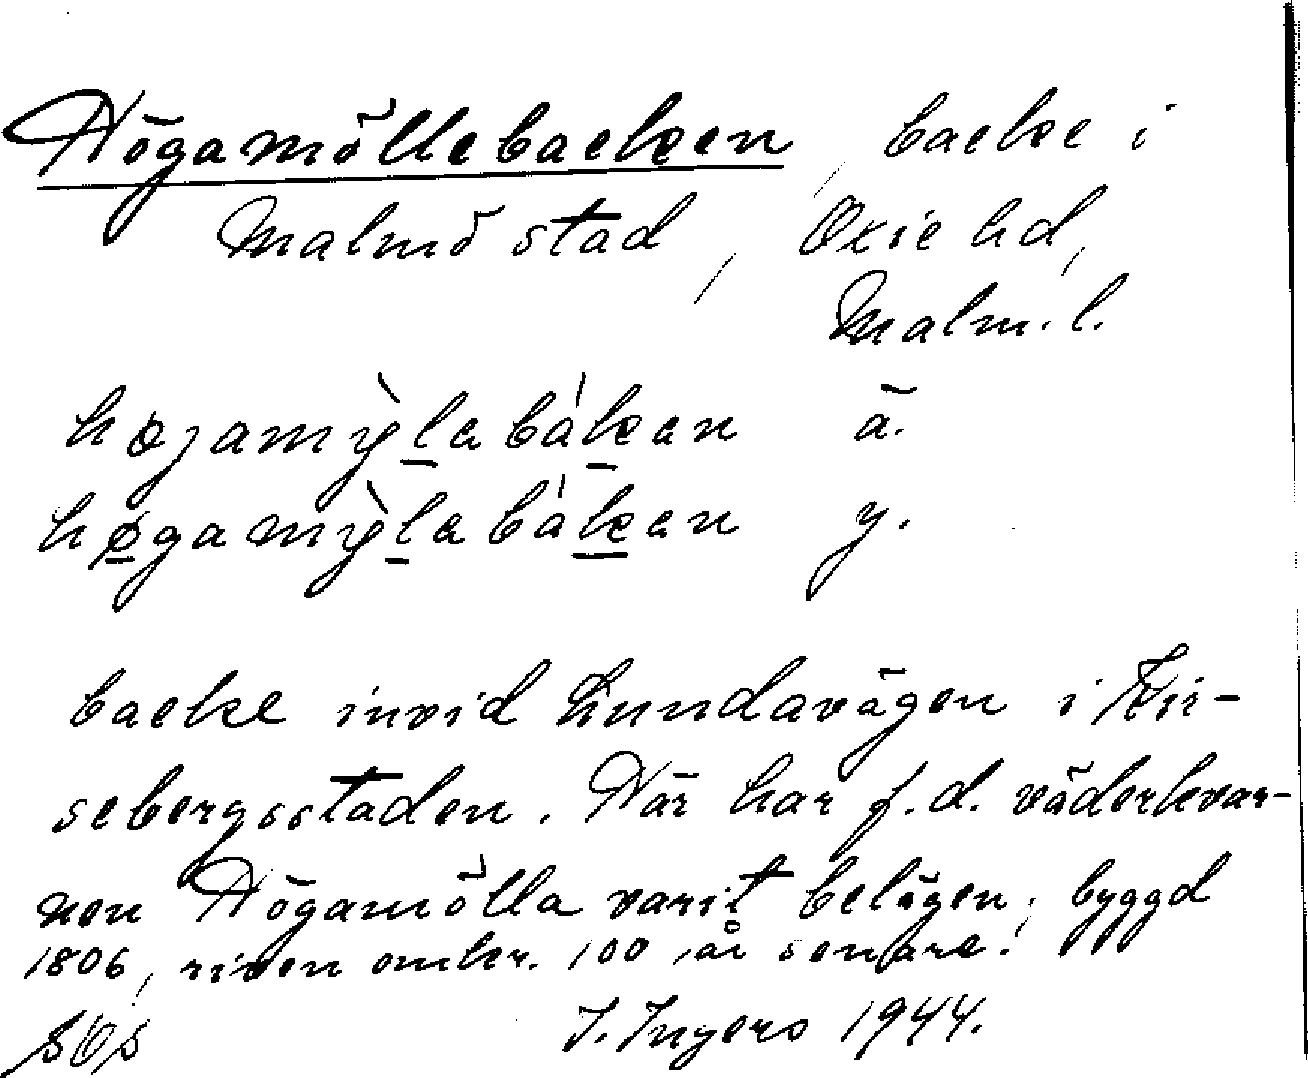 Högamöllebacken, backe i
Malmö stad, Oxie hd,
Malm. l.
högamỳlabákan ä.
høgamỳlabákan y.
backe invid Lundavägen i Kir-
sebergsstaden. Där har f.d. väderkvar-
nen Högamölla varit belägen; byggd
1806, riven omkr. 100 år senare.
I. Ingers 1944.